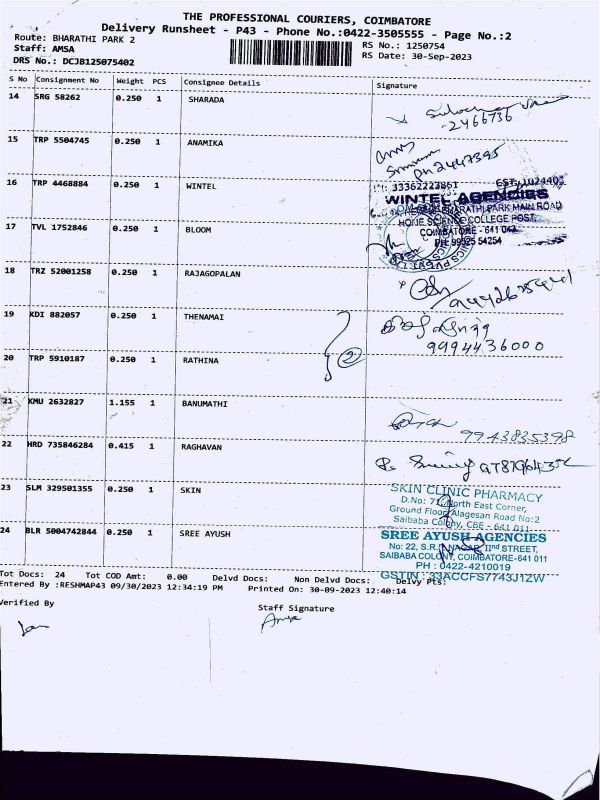 THE PROFESSIONAL COURIERS, COIMBATORE
Delivery Runsheet - P43 - Phone No.:0422-3505555 - Page No.:2
Route: BHARATHI PARK 2 RS No.: 1250754
Staff: AMSA RS Date: 30-Sep-2023
DRS No.: DCJB125075402
S No Consignment No Weight PCS Consignee Details Signature
14 SRG 58262 0.250 1 SHARADA
2466736
15 TRP 5504745 0.250 1 ANAMIKA
PH 2447395
16 TRP 4468884 0.250 1 WINTEL
WINTEL AGENCIES
BHARATHI PARK MAIN ROAD
HOME SCIENCE COLLEGE POST,
17 TVL 1752846 0.250 1 BLOOM
COIMBATORE - 641 043
PH: 99525 54254
18 TRZ 52001258 0.250 1 RAJAGOPALAN
19 KDI 882057 0.250 1 THENAMAI
9994436000
20 TRP 5910187 0.250 1 RATHINA
2
21 KMU 2632827 1.155 1 BANUMATHI
9943835398
22 HRD 735846284 0.415 1 RAGHAVAN
23 SLM 329501355 0.250 1 SKIN
SKIN CLINIC PHARMACY
D.No: 71, North East Corner,
Ground Floor, Alagesan Road No:2
Saibaba Colony, CBE - 641 011
24 BLR 5004742844 0.250 1 SREE AYUSH
SREE AYUSH AGENCIES
No: 22, S.R.P. NAGAR, IInd STREET,
SAIBABA COLONY, COIMBATORE-641 011
PH : 0422-4210019
GSTIN : 33ACCFS7743J1ZW
Tot Docs: 24 Tot COD Amt: 0.00 Delvd Docs: Non Delvd Docs: Delvy Pts:
Entered By :RESHMAP43 09/30/2023 12:34:19 PM Printed On: 30-09-2023 12:40:14
Verified By Staff Signature
Amsa